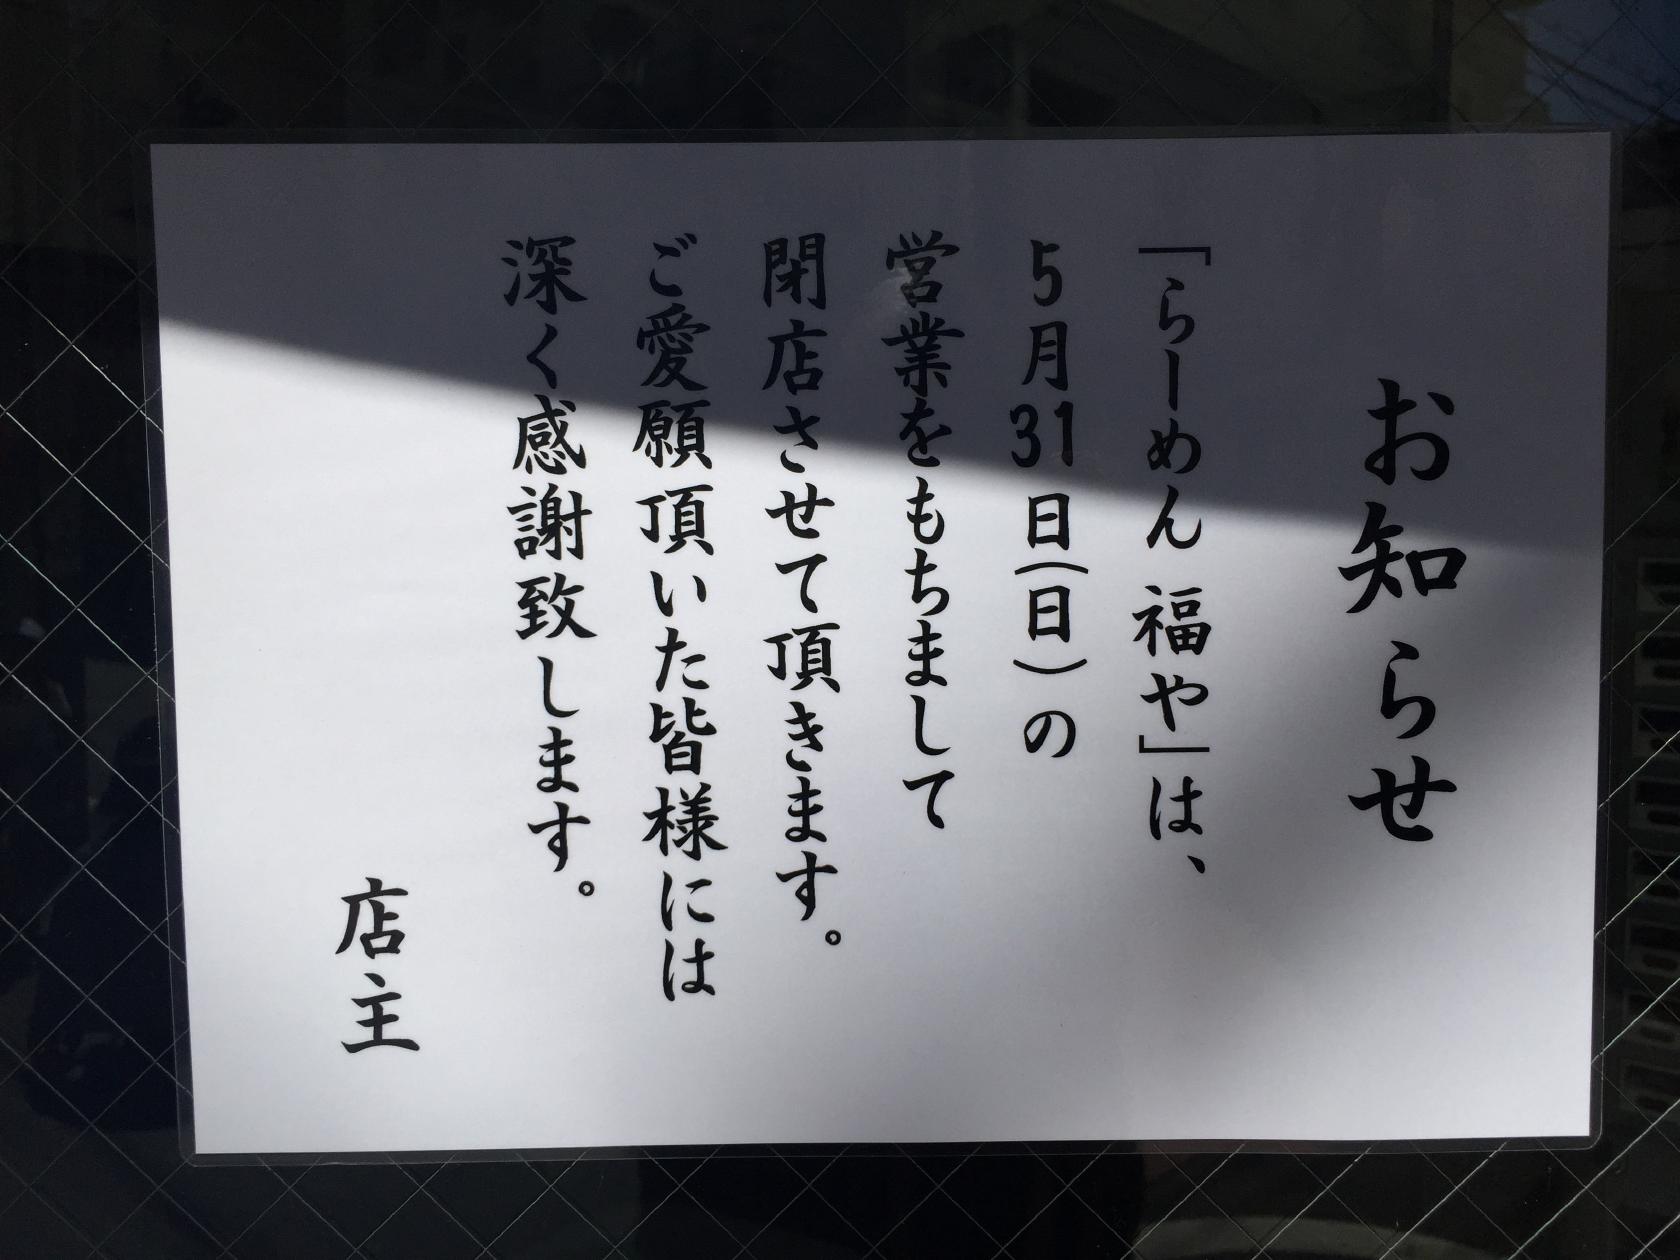 お知らせ
「らーめん 福や」は、
5月31日(日)の
営業をもちまして
閉店させて頂きます。
ご愛願頂いた皆様には
深く感謝致します。
店主